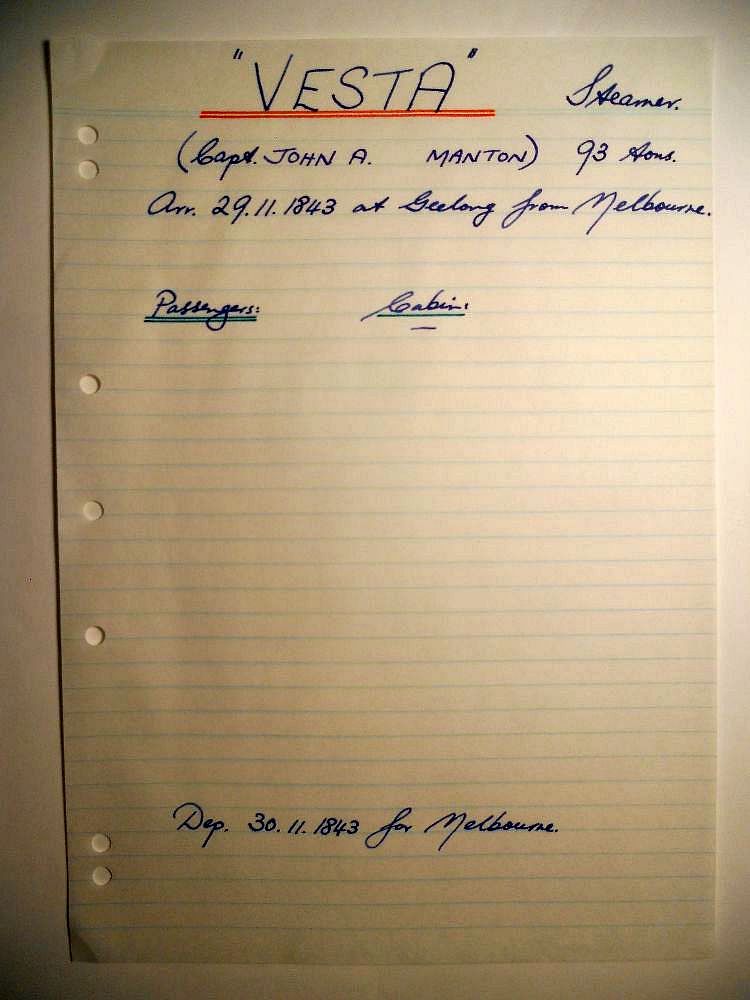 "VESTA" Steamer.
(Capt. JOHN A. MANTON) 93 tons.
Arr. 29.11.1843 at Geelong from Melbourne.
Passengers: Cabin:
—
Dep. 30.11.1843 for Melbourne.